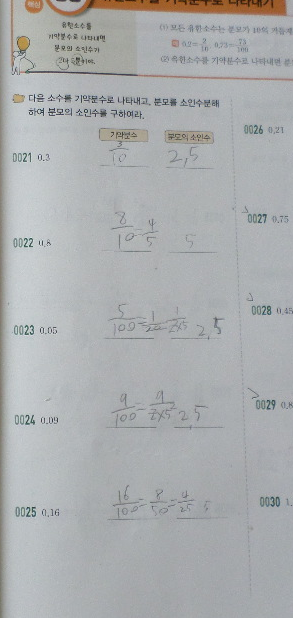 유한소수를
기약분수로 나타내면
분모의 소인수가
2나 5뿐이야.
(1) 모든 유한소수는 분모가 10의 거듭제
0.2=2/10, 0.73=73/100
(2) 유한소수를 기약분수로 나타내면 분
다음 소수를 기약분수로 나타내고, 분모를 소인수분해
하여 분모의 소인수를 구하여라.
기약분수 분모의 소인수
0021 0.3 3/10 2,5
0022 0.8 8/10=4/5 5
0023 0.05 5/100=1/20 1/2×5 2,5
0024 0.09 9/100=9/2×5 2,5
0025 0.16 16/100=8/50=4/25 5
0026 0.21
0027 0.75
0028 0.45
0029 0.8
0030 1.